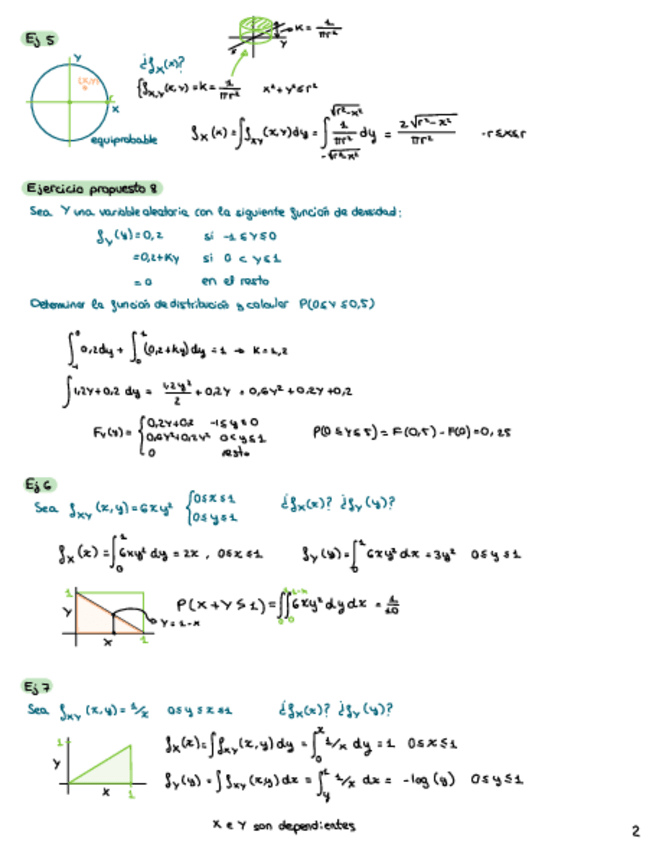 Ej 5
K = 1/πr²
Y
Y
(x,y)
x
equiprobable
¿fₓ(x)?
{f_{X,Y}(x,y) = K = 1/πr²   x² + y² ≤ r²
fₓ(x) = ∫f_{XY}(x,y)dy = ∫_{-√(r²-x²)}^{√(r²-x²)} 1/πr² dy = 2√(r²-x²)/πr²   -r ≤ x ≤ r
Ejercicio propuesto 8
Sea Y una variable aleatoria con la siguiente función de densidad:
f_Y(y) = 0,2   si -1 ≤ y ≤ 0
= 0,2 + Ky   si 0 < y ≤ 1
= 0   en el resto
Determinar la función de distribución y calcular P(0 ≤ Y ≤ 0,5)
∫_{-1}^{0} 0,2dy + ∫_{0}^{1} (0,2 + ky)dy = 1 → K = 1,2
∫1,2y + 0,2 dy = 1,2y²/2 + 0,2y = 0,6y² + 0,2y + 0,2
F_Y(y) = { 0,2y + 0,2   -1 ≤ y ≤ 0
0 < y ≤ 1
0   resto
P(0 ≤ Y ≤ 5) = F(0,5) - F(0) = 0,25
Ej 6
Sea f_{XY}(x,y) = 6xy²   { 0 ≤ x ≤ 1   ¿fₓ(x)? ¿f_Y(y)?
0 ≤ y ≤ 1
fₓ(x) = ∫_{0}^{1} 6xy² dy = 2x, 0 ≤ x ≤ 1   f_Y(y) = ∫_{0}^{1} 6xy² dx = 3y²   0 ≤ y ≤ 1
1
Y
x
1
y = 1-x
P(X + Y ≤ 1) = ∫_{0}^{1}∫_{0}^{1-x} 6xy² dy dx = 1/10
Ej 7
Sea f_{XY}(x,y) = 1/x   0 ≤ y ≤ x ≤ 1   ¿fₓ(x)? ¿f_Y(y)?
1
Y
x
1
fₓ(x) = ∫f_{XY}(x,y) dy = ∫_{0}^{x} 1/x dy = 1   0 ≤ x ≤ 1
f_Y(y) = ∫f_{XY}(x,y) dx = ∫_{y}^{1} 1/x dx = -log(y)   0 ≤ y ≤ 1
X e Y son dependientes
2